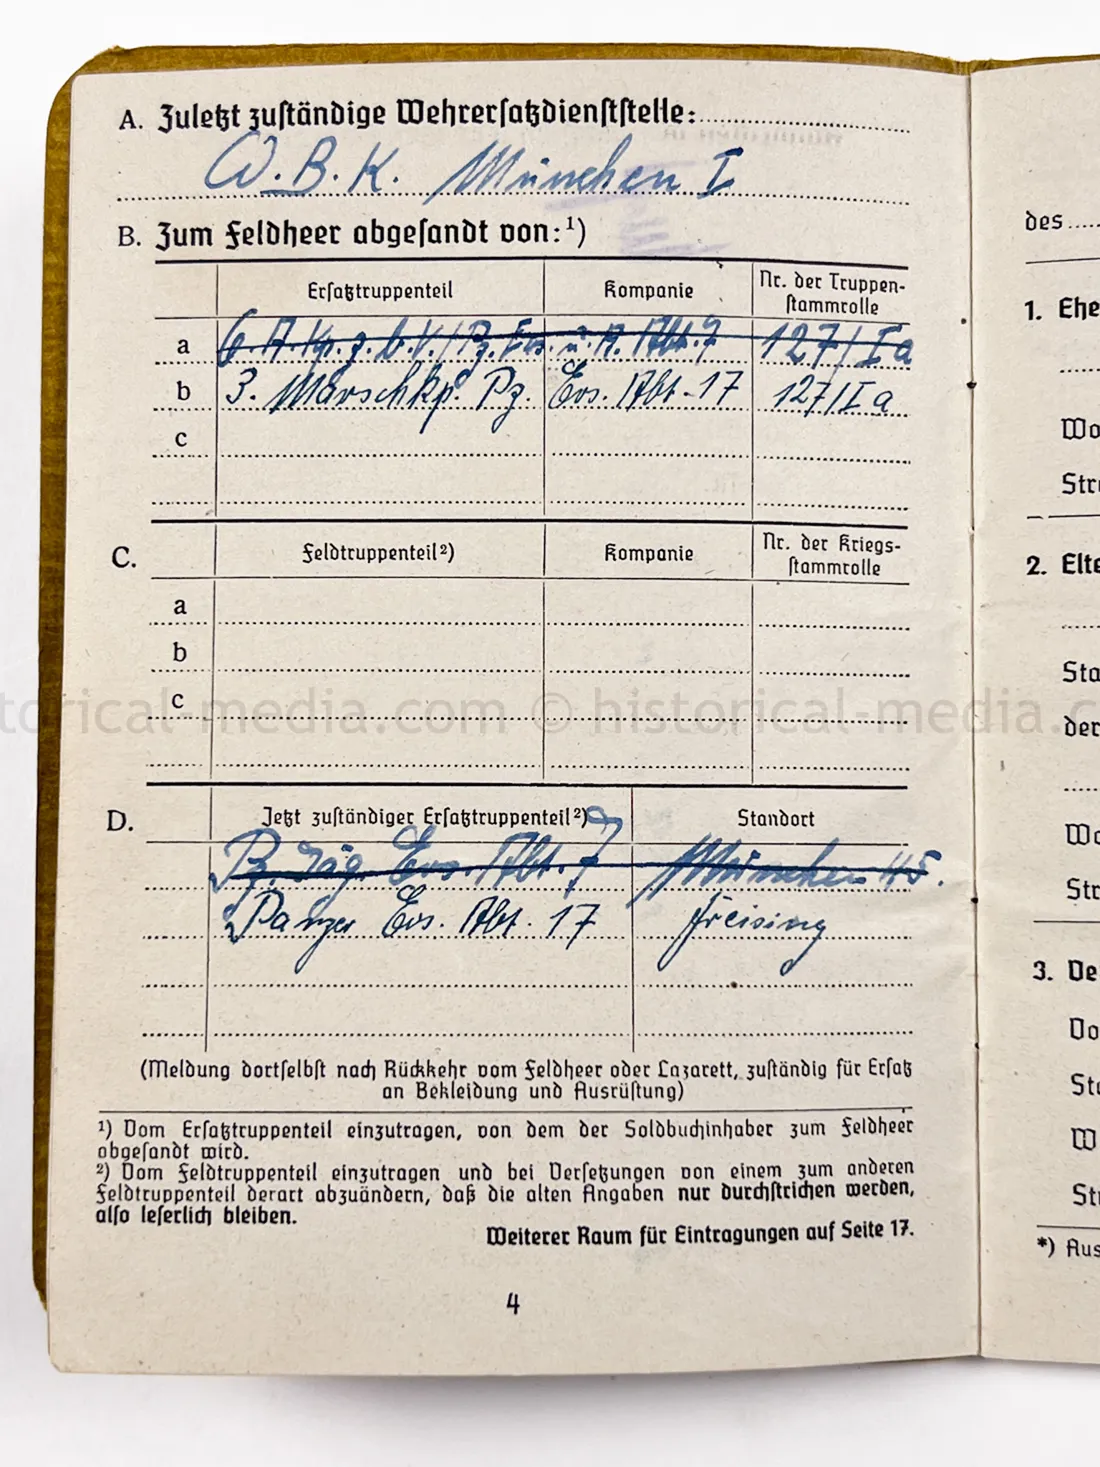 A. Zuletzt zuständige Wehrersatzdienststelle:
W.B.K. München I
B. Zum Feldheer abgesandt von:¹)
Ersatztruppenteil Kompanie Nr. der Truppen-
stammrolle
a 6. A. Kp. z. b. V. / Pz. Ers. u. A. Abt. 7 127/Ia
b 3. Marschkp. Pz. Ers. Abt. 17 127/Ia
c
C. Feldtruppenteil²) Kompanie Nr. der Kriegs-
stammrolle
a
b
c
D. Jetzt zuständiger Ersatztruppenteil²) Standort
Pz. Jäg. Ers. Abt. 7 München 45.
Panzer Ers. Abt. 17 Freising
(Meldung dortselbst nach Rückkehr vom Feldheer oder Lazarett, zuständig für Ersatz
an Bekleidung und Ausrüstung)
¹) Vom Ersatztruppenteil einzutragen, von dem der Soldbuchinhaber zum Feldheer
abgesandt wird.
²) Vom Feldtruppenteil einzutragen und bei Versetzungen von einem zum anderen
Feldtruppenteil derart abzuändern, daß die alten Angaben nur durchstrichen werden,
also leserlich bleiben.
Weiterer Raum für Eintragungen auf Seite 17.
4
des
1. Ehe
Wo
Str
2. Elte
Sta
der
Wo
Str
3. Ve
Vo
Sta
W
St
*) Aus
torical-media.com © historical-media.c